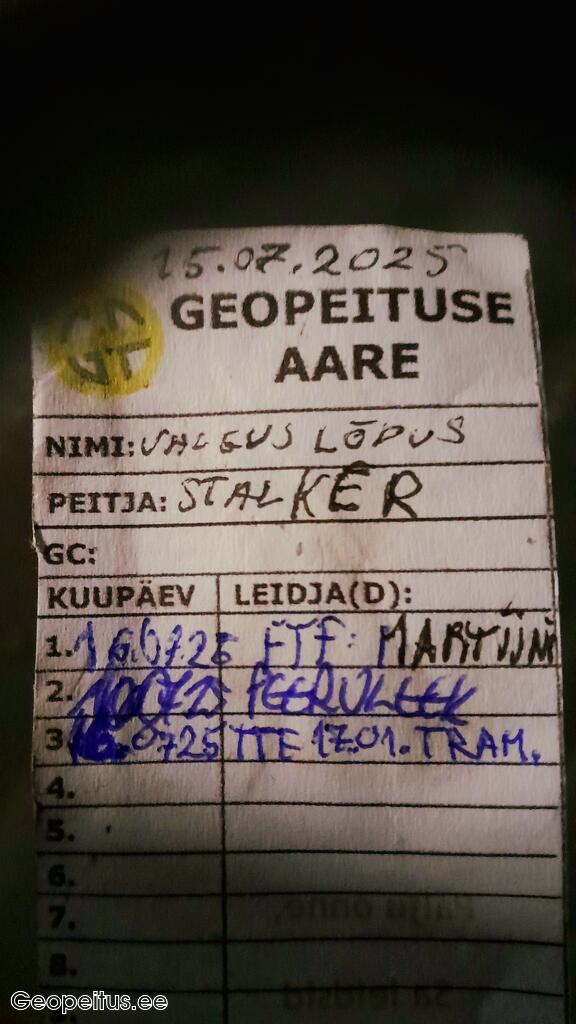 15.07.2025
GEOPEITUSE
AARE
NIMI: VALGUS LÕPUS
PEITJA: STALKER
GC:
KUUPÄEV LEIDJA(D):
1. 16.07.25 FTF: MARTIINI
2. PEERULEEK
3 16.0725 TTF 17.01. TRAM.
4.
5.
6.
7.
8.
Palju õnne,
Sa leidsid
Geopeitus.ee